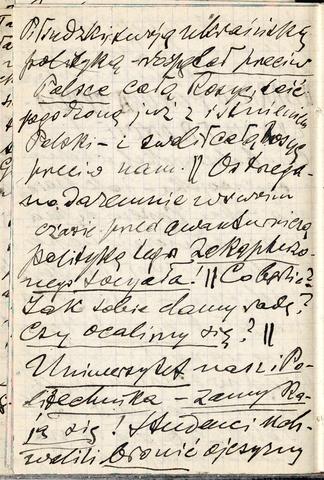 Piłsudski swoją ukraińską
polityką – wzgl. pchał przeciw
Polsce całą Rosję, dziś
pogodzoną już z istnieniem
Polski – i zwalił całą Rosję
przeciw nam. || Ostrzega-
no daremnie we swoim
czasie przed awanturniczą
polityką tego zakapturzo-
nego socyała! || Co będzie?
Jak sobie damy radę?
Czy ocalimy się? ||
Uniwersytet nasz i Po-
litechnika – zamyka-
ją się! Studenci uch-
walili bronić ojczyzny